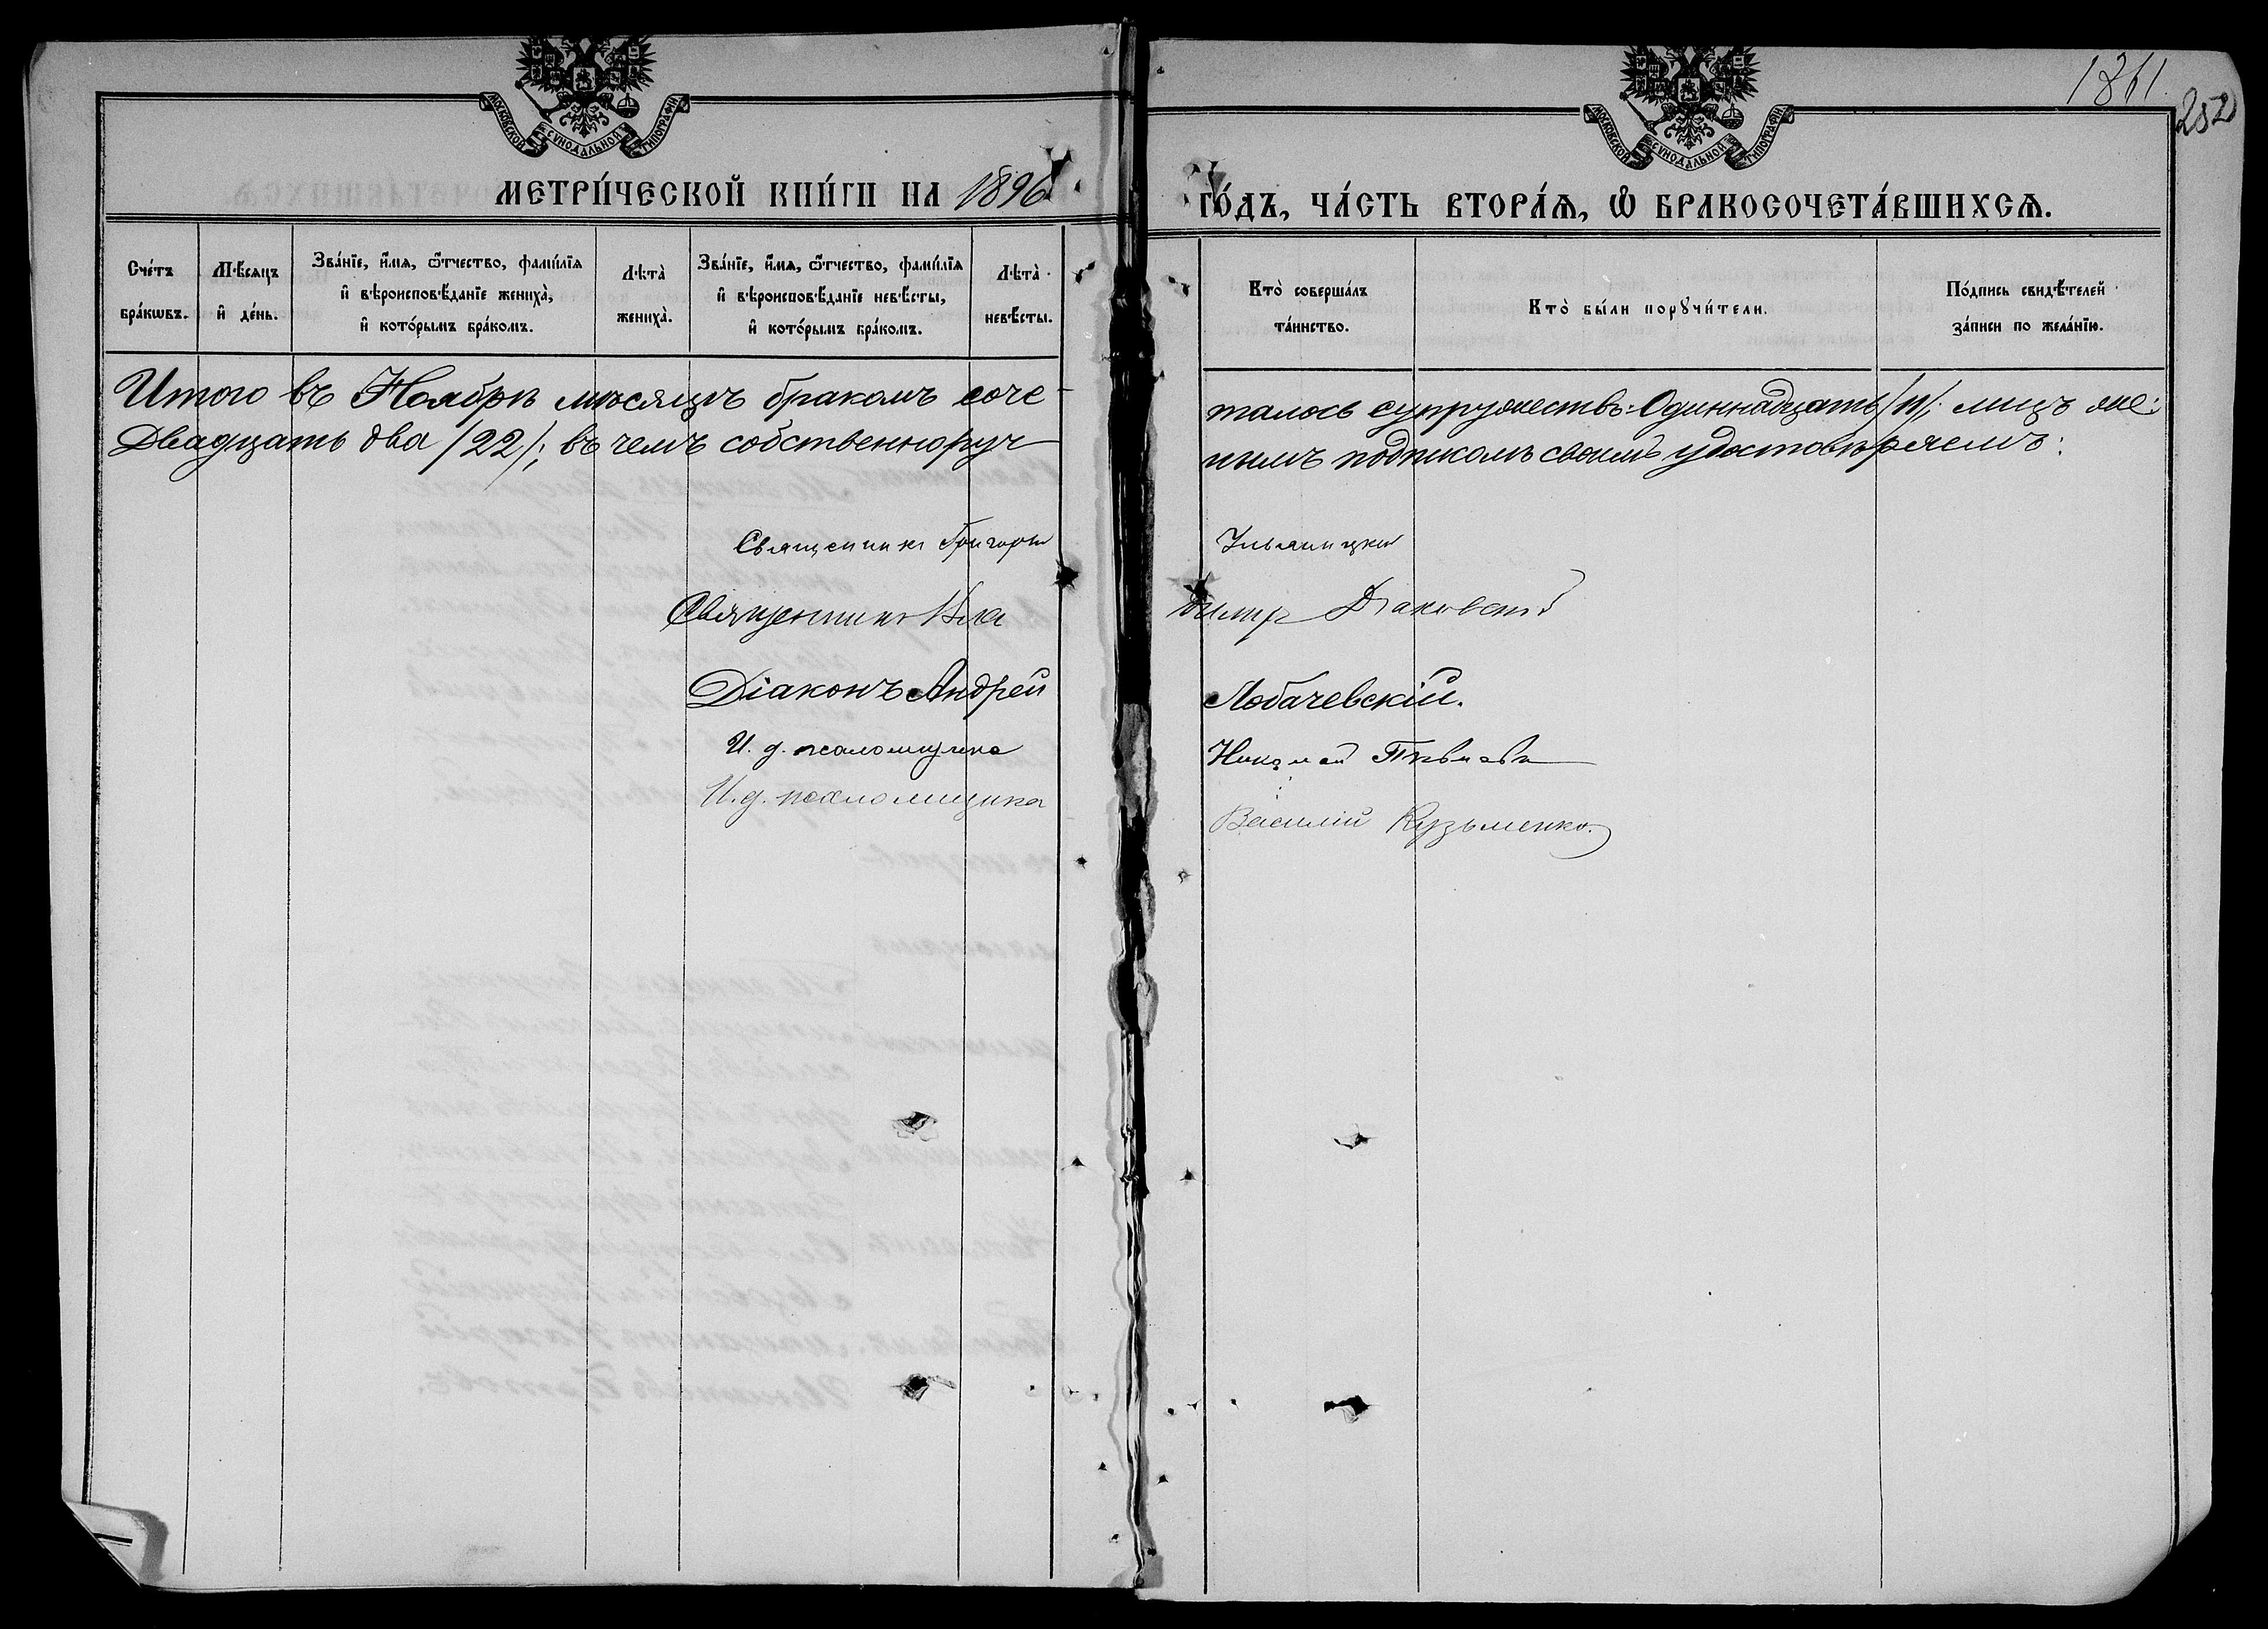 1861.
252
МОСКОВСКОЙ СУНОДАЛЬНОЙ ТИПОГРАФІИ
МОСКОВСКОЙ СУНОДАЛЬНОЙ ТИПОГРАФІИ
МЕТРИ́ЧЕСКОЙ КНИ́ГИ НА 1896 ГО́ДЪ, ЧА́СТЬ ВТОРА́Ѧ, Ѿ БРАКОСОЧЕТА́ВШИХСѦ.
Сче́тъ бра́кѡвъ.
Мѣ́сяцъ и҆ де́нь.
Зва́нїе, и҆́мя, ѻ҆́тчество, фами́лїя и҆ вѣроисповѣ́данїе жениха̀, и҆ кото́рымъ бра́комъ.
Лѣта̀ жениха̀.
Зва́нїе, и҆́мя, ѻ҆́тчество, фами́лїя и҆ вѣроисповѣ́данїе невѣ́сты, и҆ кото́рымъ бра́комъ.
Лѣта̀ невѣ́сты.
Кто̀ соверша́лъ та́инство.
Кто̀ бы́ли порꙋчи́тели.
По́дпись свидѣ́телей за́писи по жела́нїю.
Итого въ Ноябрѣ мѣсяцѣ бракомъ соче-
талось супружествъ: Одиннадцать /11/; лицъ же:
Двадцать два /22/; въ чемъ собственноруч
нымъ подписомъ своимъ удостовѣряемъ:
Священникъ Григорій
Священникъ Вла димір
Діаконъ Андрей Лобачевскій.
И. д. псаломщика Николай
И. д. псаломщика Василій Кузьменко.